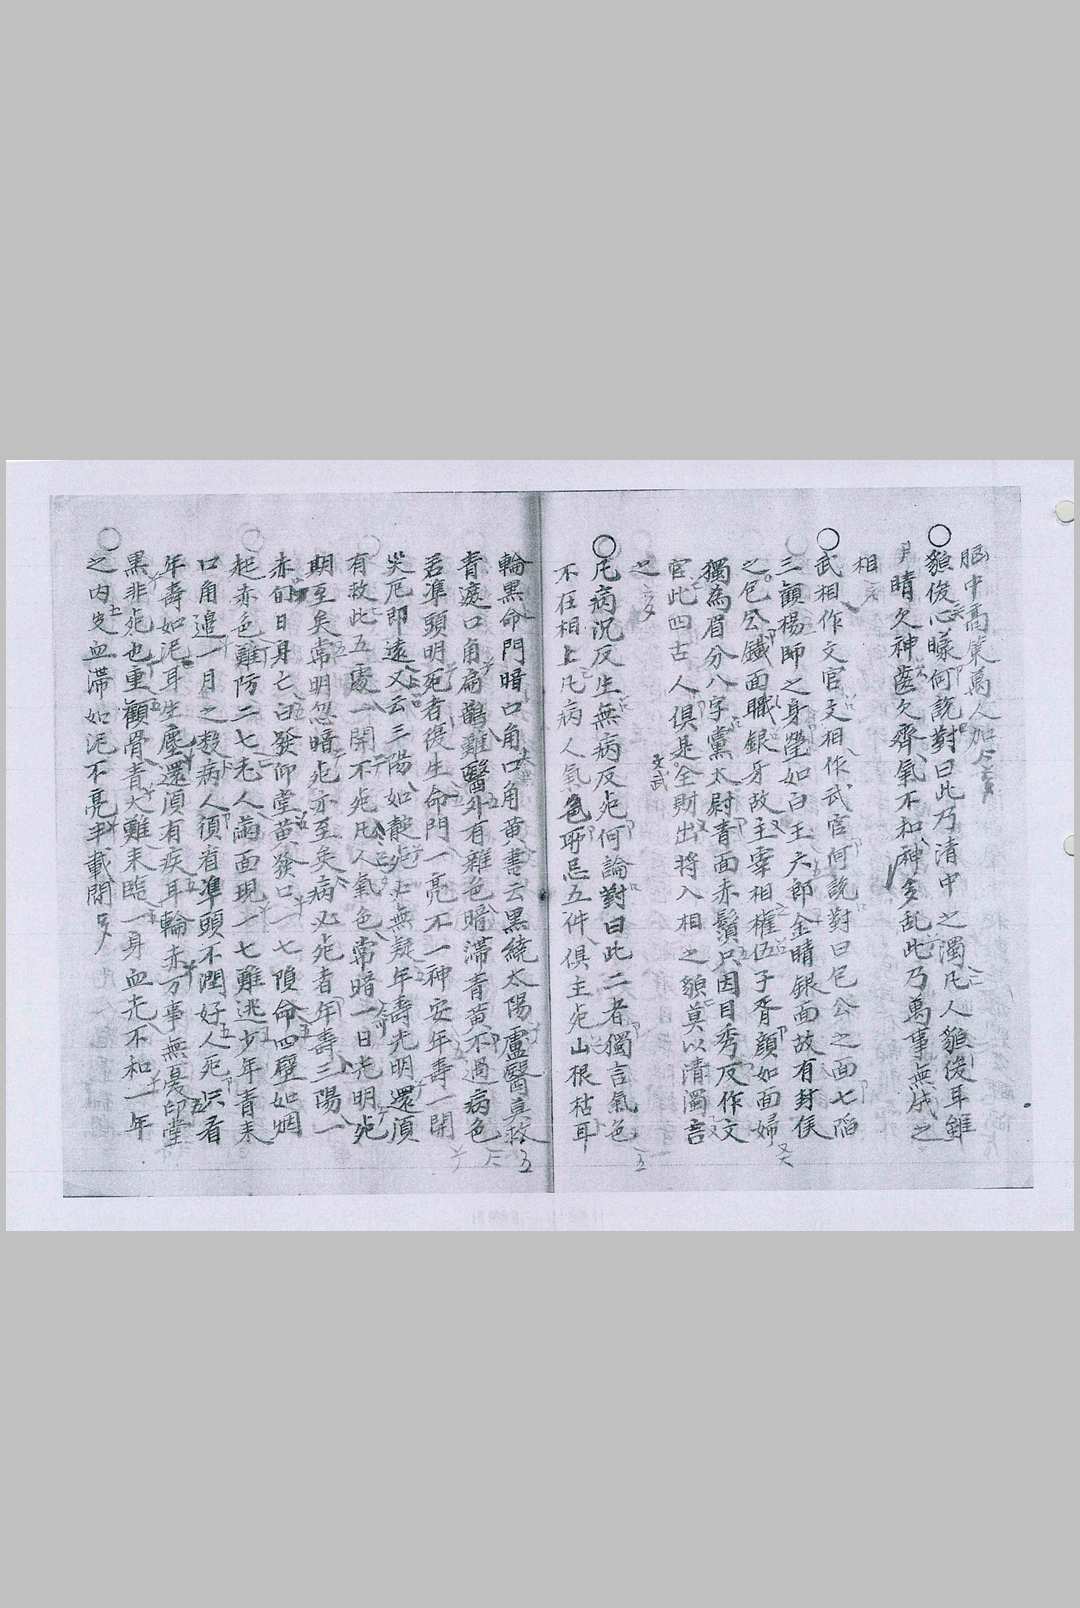 胸中高策萬人加
○貌俊心矇何說對曰此乃清中之濁凡人貌俊耳雖
睛欠神齒欠齊氣不和神多乱此乃萬事無成之
相
○武相作文官文相作武官何說對曰包公之面七陷
三顴楊師之身瑩如白玉六郎金睛銀面故有封侯
之包公鐵面職銀牙故主宰相權伍子胥顔如面婦
獨為眉分八字黨太尉青面赤鬚只因目秀反作文
官此四古人俱是全財出將入相之貌莫以清濁言
之
○凡病況反生無病反死何論對曰此二者獨言氣色
不在相上凡病人氣色所忌五件俱主死山根枯耳
輪黑命門暗口角口角黃書云黑繞太陽盧醫莫救
青遮口角扁鵲難醫外有雜色暗滯青黃不過病色
若準頭明死者復生命門一亮不一神安年壽一開
災厄即遠又云三陽如靛死無疑年壽光明還須
有救此五處一開不死凡人氣色常暗一日光明死
期至矣常明忽暗死亦至矣病必死者年壽三陽一
赤旬日身亡白發印堂黃發口一七隕命四壁如烟
起赤色難防二七老人滿面現一七難逃少年青來
口角邊一月之殺病人須省準頭不潤好人死只看
年壽如泥耳生塵還須有疾耳輪赤万事無憂印堂
黑非死也重顴骨青大難來臨一身血光不和一年
之內災血滯如泥不亮半載間